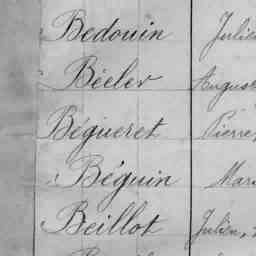 Bedouin Julie
Béeler August
Bégueret Pierre,
Béguin Mari
Beillot Julien,